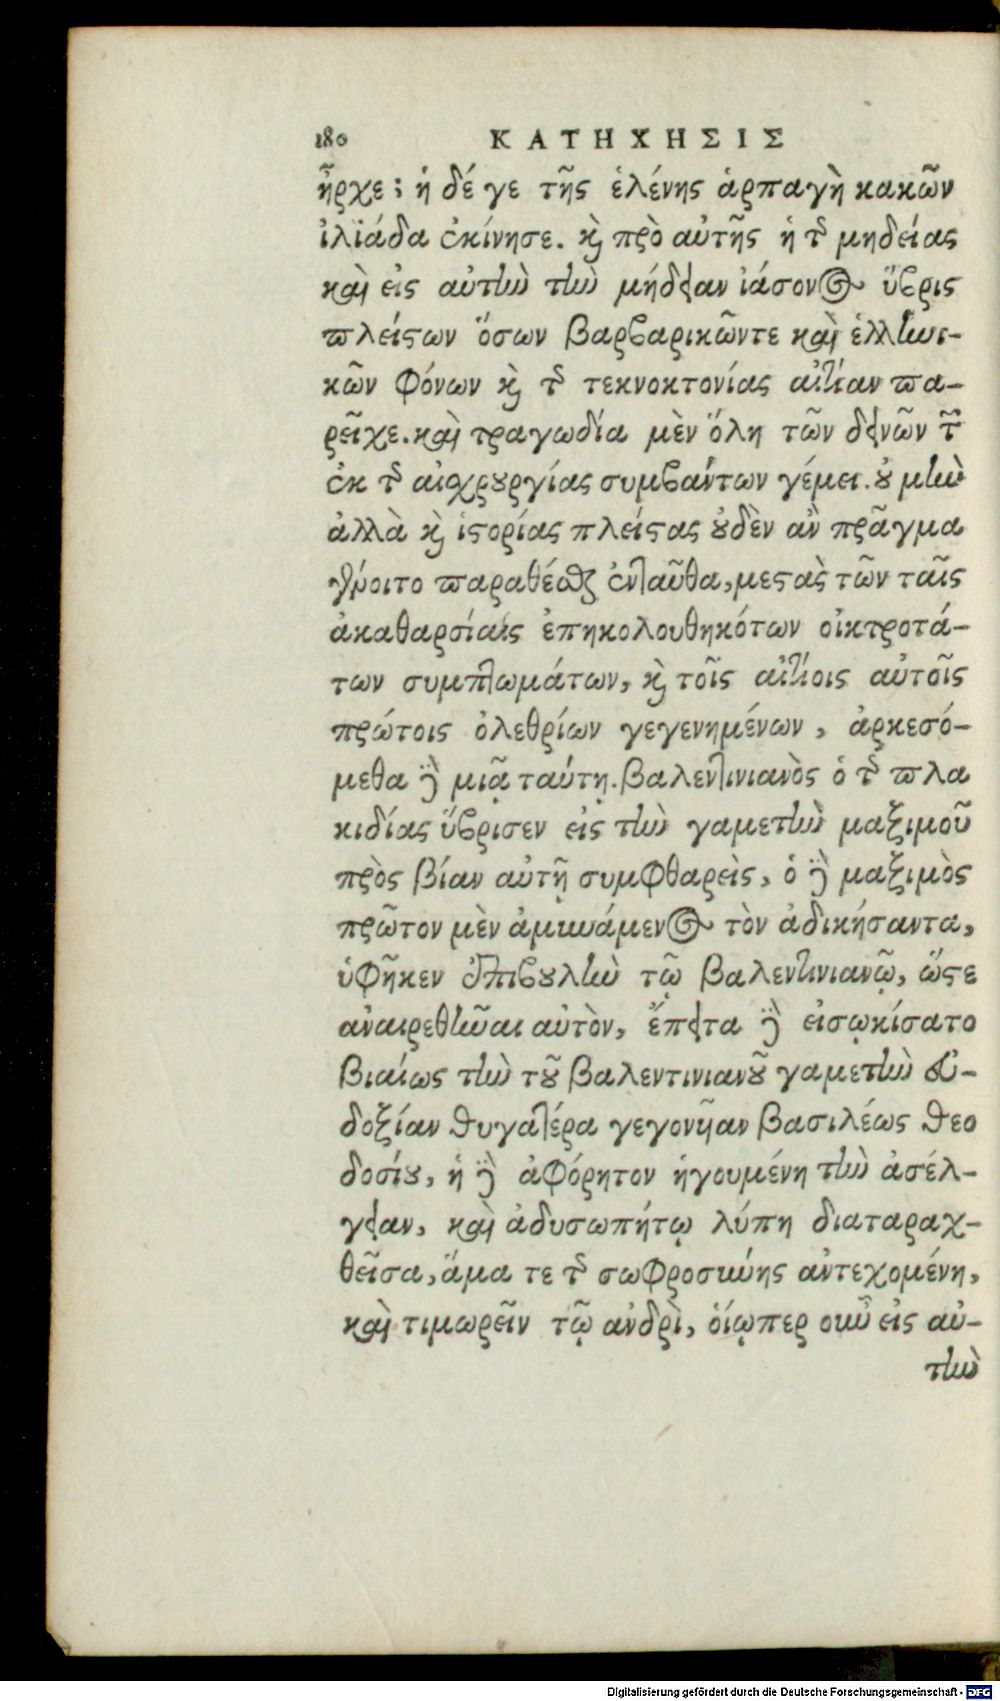 180 ΚΑΤΗΧΗΣΙΣ
ἦρχε; ἡ δέ γε τῆς ἑλένης ἁρπαγὴ κακῶν
ἰλϊάδα ἐκίνησε. καὶ πρὸ αὐτῆς ἡ τῆς μηδείας
καὶ εἰς αὐτὴν τὴν μήδειαν ἰάσονος ὕβρις
πλείστων ὅσων βαρβαρικῶντε καὶ ἑλληνι-
κῶν φόνων καὶ τῆς τεκνοκτονίας αἰτίαν πα-
ρεῖχε. καὶ τραγωδία μὲν ὅλη τῶν δεινῶν τῶν
ἐκ τῆς αἰσχρουργίας συμβάντων γέμει. οὐ μὴν
ἀλλὰ καὶ ἱστορίας πλείστας οὐδὲν ἂν πρᾶγμα
γένοιτο παραθέσθαι ἐνταῦθα, μεστὰς τῶν ταῖς
ἀκαθαρσίαις ἐπηκολουθηκότων οἰκτροτά-
των συμπτωμάτων, καὶ τοῖς αἰτίοις αὐτοῖς
πρώτοις ὀλεθρίων γεγενημένων, ἀρκεσό-
μεθα δὲ μιᾷ ταύτῃ. βαλεντινιανὸς ὁ τῆς πλα
κιδίας ὕβρισεν εἰς τὴν γαμετὴν μαξιμοῦ
πρὸς βίαν αὐτῇ συμφθαρεὶς, ὁ δὲ μαξιμὸς
πρῶτον μὲν ἀμυνάμενος τὸν ἀδικήσαντα,
ὑφῆκεν ἐπιβουλὴν τῷ βαλεντινιανῷ, ὥστε
ἀναιρεθῆναι αὐτὸν, ἔπειτα δὲ εἰσῳκίσατο
βιαίως τὴν τοῦ βαλεντινιανοῦ γαμετὴν εὐ-
δοξίαν θυγατέρα γεγονῆαν βασιλέως θεο
δοσίου, ἡ δὲ ἀφόρητον ἡγουμένη τὴν ἀσέλ-
γειαν, καὶ ἀδυσωπήτῳ λύπῃ διαταραχ-
θεῖσα, ἅμα τε τῆς σωφροσύνης ἀντεχομένη,
καὶ τιμωρεῖν τῷ ἀνδρὶ, ὁίῳπερ οὖν εἰς αὐ-
τὴν
Digitalisierung gefördert durch die Deutsche Forschungsgemeinschaft - DFG